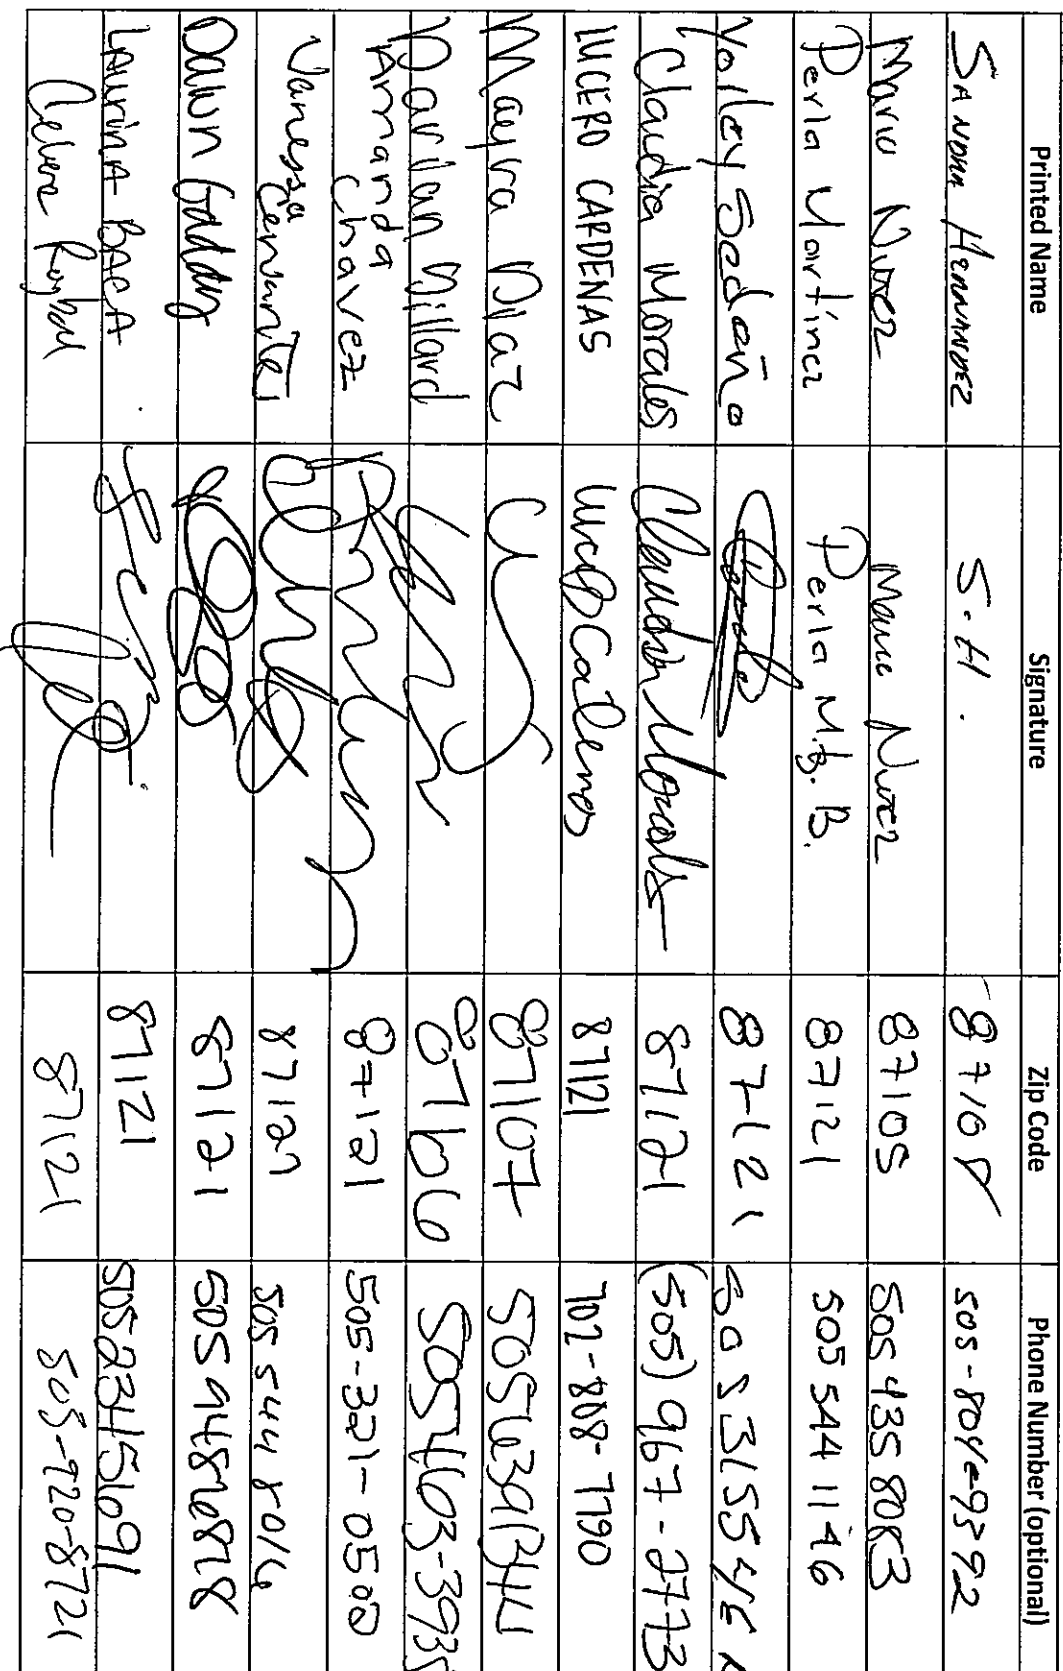 Printed Name Signature Zip Code Phone Number (optional)
SANDRA HERNANDEZ S.H. 87105
Mario Nuñez Mario Nuñez 87105 505 435 8083
Perla Martínez Perla M.B.B. 87121 505 544 1146
Yoiley Sedeño 87121
Claudia Morales Claudia Morales 87121 (505) 967-2773
LUCERO CARDENAS 87121 702-808-7790
Mayra Diaz 87107
Darian Dillard 505463-3935
Amanda Chavez 87121 505-321-0500
Vanessa Cervantes 87121 505 544 8016
Dawn 87121 5059486828
LAURINA BACA 87121 5052345691
87121 505-720-8721